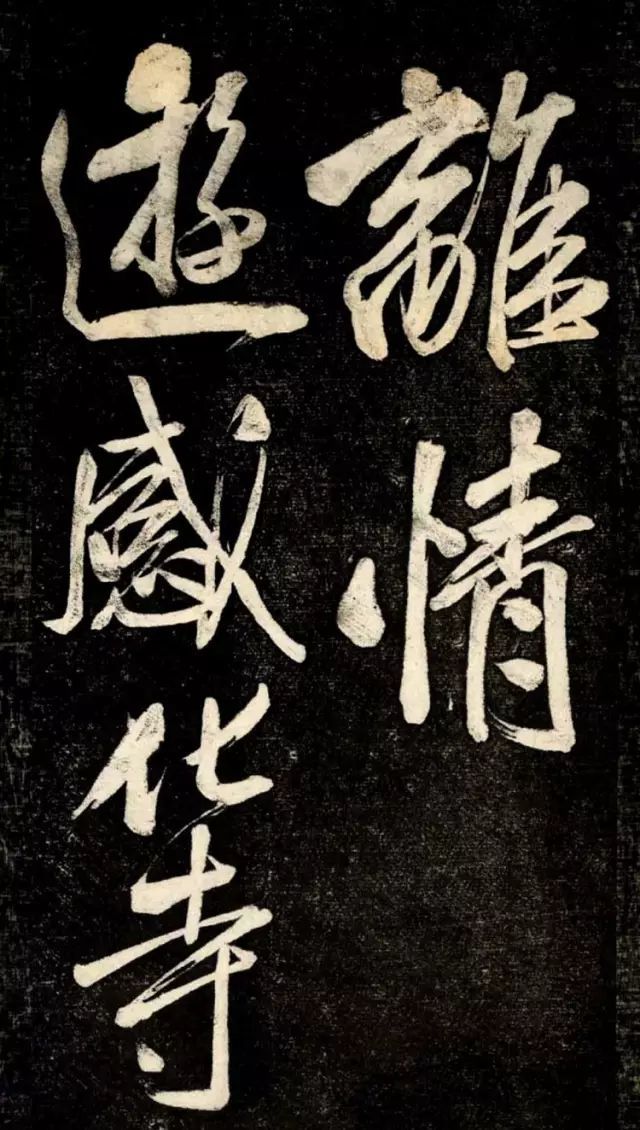 離情
遊感化寺